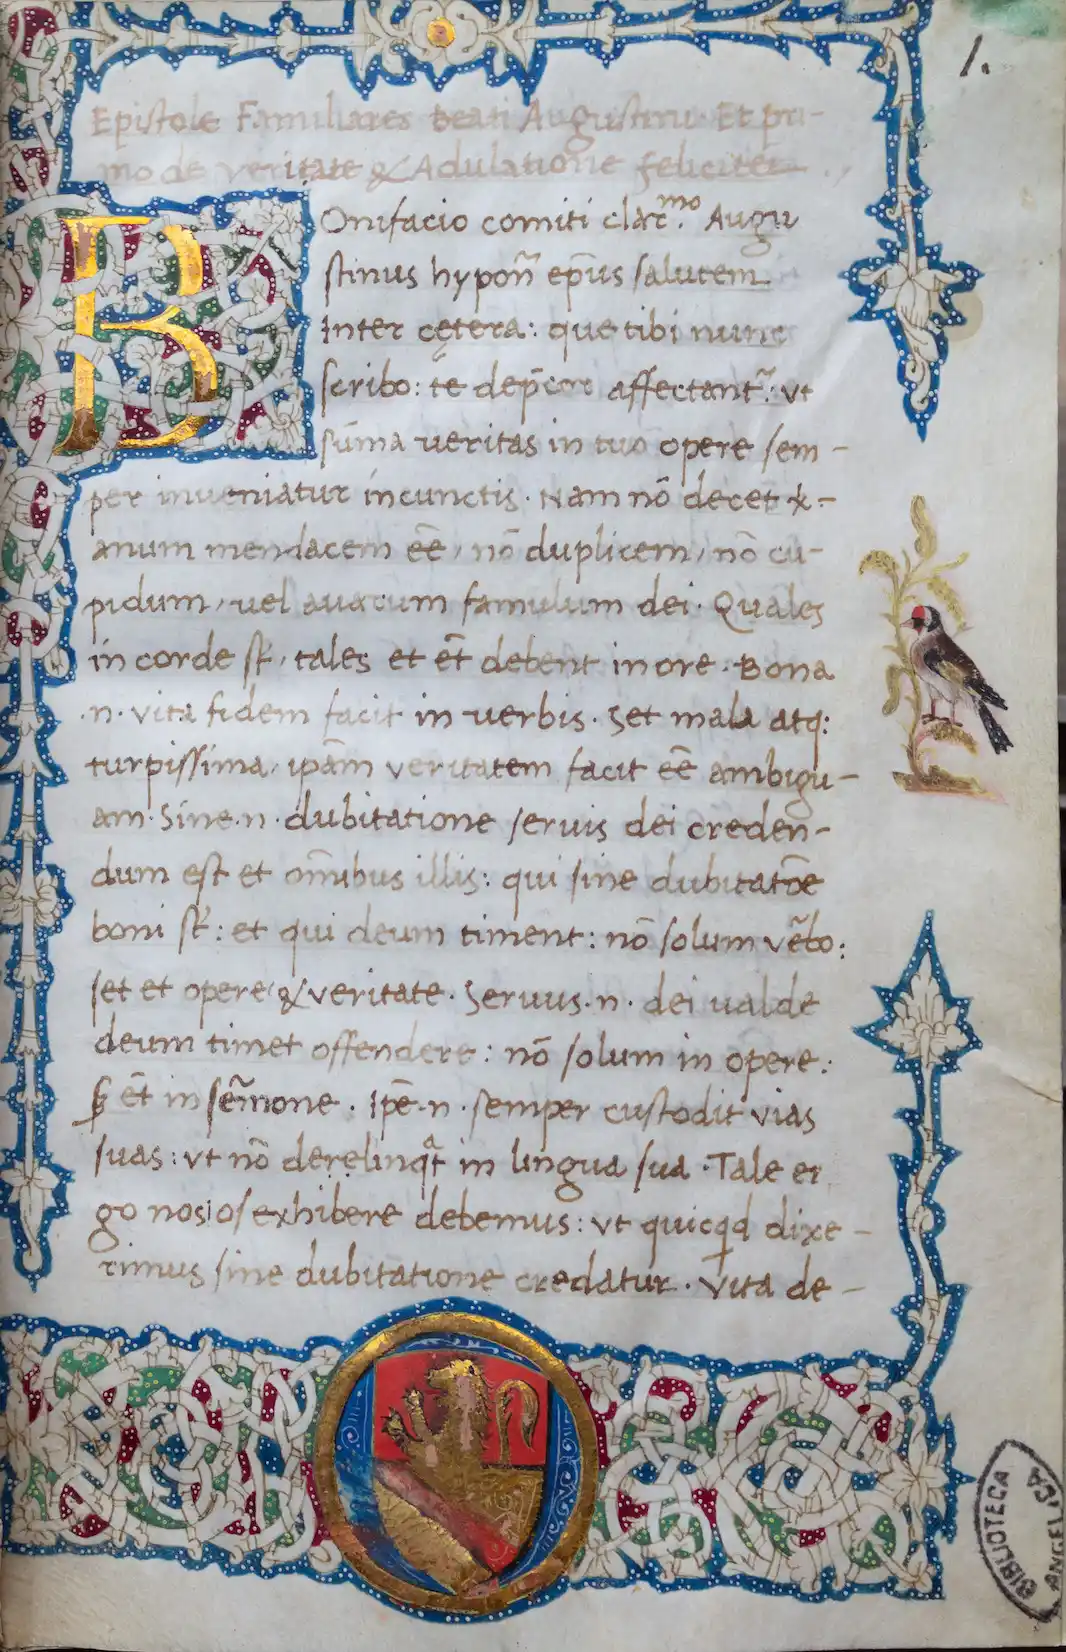 1.
Epistole Familiares Beati Augustini Et pri-
mo de veritate & Adulatione feliciter
BOnifacio comiti clar.mo Augu
stinus hypoñ ep̃us salutem
Inter cętera: que tibi nunc
scribo: te dep̃cor affectant̃: vt
sũma veritas in tuo opere sem-
per inveniatur incunctis. Nam nõ decet x̃-
anum mendacem eẽ, nõ duplicem, nõ cu-
pidum, vel avarum famulum dei. Quales
in corde st̃, tales et et̃ debent in ore. Bona
.n. vita fidem facit in verbis. Set mala atq:
turpissima, ip̃am veritatem facit eẽ ambigu-
am. Sine .n. dubitatione servis dei creden-
dum est et om̃ibus illis: qui sine dubitatõe
boni st̃: et qui deum timent: nõ solum vẽbo:
set et opere & veritate. Servus .n. dei valde
deum timet offendere: nõ solum in opere:
ꝫ et̃ in sẽmone. Ip̃e .n. semper custodit vias
suas: vt nõ derelinqᵃt in lingua sua. Tale er
go nos ios exhibere debemus: vt quicqd dixe-
rimus sine dubitatione credatur. Vita de-
BIBLIOTECA
ANGELICA